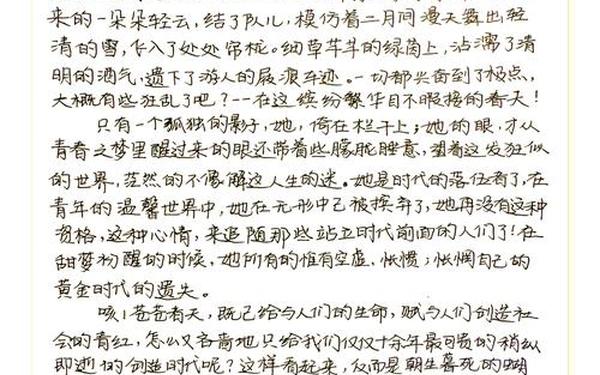 来的一朵朵轻云，结了队儿，模仿着二月间漫天舞出轻
清的雪，飞入了处处帘栊。细草芊芊的绿茵上，沾濡了清
明的酒气，遗下了游人的屐痕车迹。一切都兴奋到了极点，
大概有些狂乱了吧？--在这缤纷繁华目不暇接的春天！
只有一个孤独的影子，她，倚在栏干上；她的眼，才从
青春之梦里醒过来的眼还带着些朦胧睡意，望着这发狂似
的世界，茫然的不像解这人生的谜。她是时代的落伍者了，在
青年的温馨世界中，她在无形中已被摈弃了，她再没有这种
资格，这种心情，来追随那些站立时代前面的人们了！在
甜梦初醒的时候，她所有的惟有空虚，怅惘；怅惘自己的
黄金时代的遗失。
咳！苍苍者天，既已给与人们的生命，赋与人们创造社
会的青红，怎么又吝啬地只给我们仅仅十余年最可贵的稍纵
即逝的创造时代呢？这样看起来，反而是朝生暮死的蝴